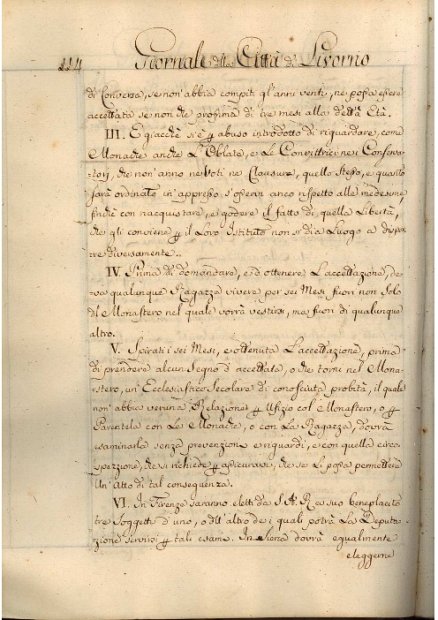 224 Giornale della Città di Livorno
di Conversa, se non' abbia compiti gl'anni venti, ne possa essere
accettata se non che prossima di tre mesi alla detta Età.
III. E giacchè si è p abuso introdotto di riguardare, come
Monache anche L'Oblate, e Le Convittrici nei Conserva-
tori, che non anno ne Voti ne Clausura, quello stesso, e quanto
sarà ordinato in' appresso s'osservi anco rispetto alle medesime,
finchè con riacquistare, e godere il fatto di quella Libertà,
che gli conviene p il Loro Istituto non si dia Luogo a dispor-
re diversamente..
IV. Prima di domandare, e d'ottenere L'accettazione, de-
va qualunque Ragazza vivere per sei Mesi fuori non solo
del Monastero nel quale vorrà vestirsi, ma fuori di qualunque
altro.
V. Spirati i sei Mesi, e ottenuta L'accettazione, prima
di prendere alcun segno d'accettata, o che torni nel Mona-
stero, un' Ecclesiastico Secolare di conosciuta probità, il quale
non' abbia veruna Relazione p Ufizio col Monastero, o p
Parentela con Le Monache, o con La Ragazza, dovrà
esaminarla senza prevenzione e riguardi, e con quella circo-
spezione, che si richiede p assicurarsi, che se Li possa permettere
Un'Atto di tal conseguenza.
VI. In Firenze saranno eletti da S. A. R. a suo beneplacito
tre Soggetti d'uno, o dell'altro dei quali potrà La Deputa-
zione servirsi p tali esami. In Siena dovrà egualmente
eleggerne